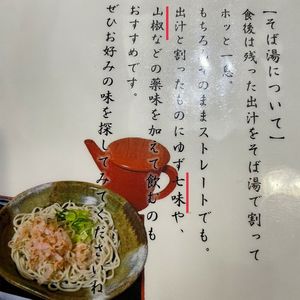 【そば湯について】
食後は残った出汁をそば湯で割って
ホッと一息。
もちろんそのままストレートでも。
出汁と割ったものにゆず七味や、
山椒などの薬味を加えて飲むのも
おすすめです。
ぜひお好みの味を探してみてくださいね